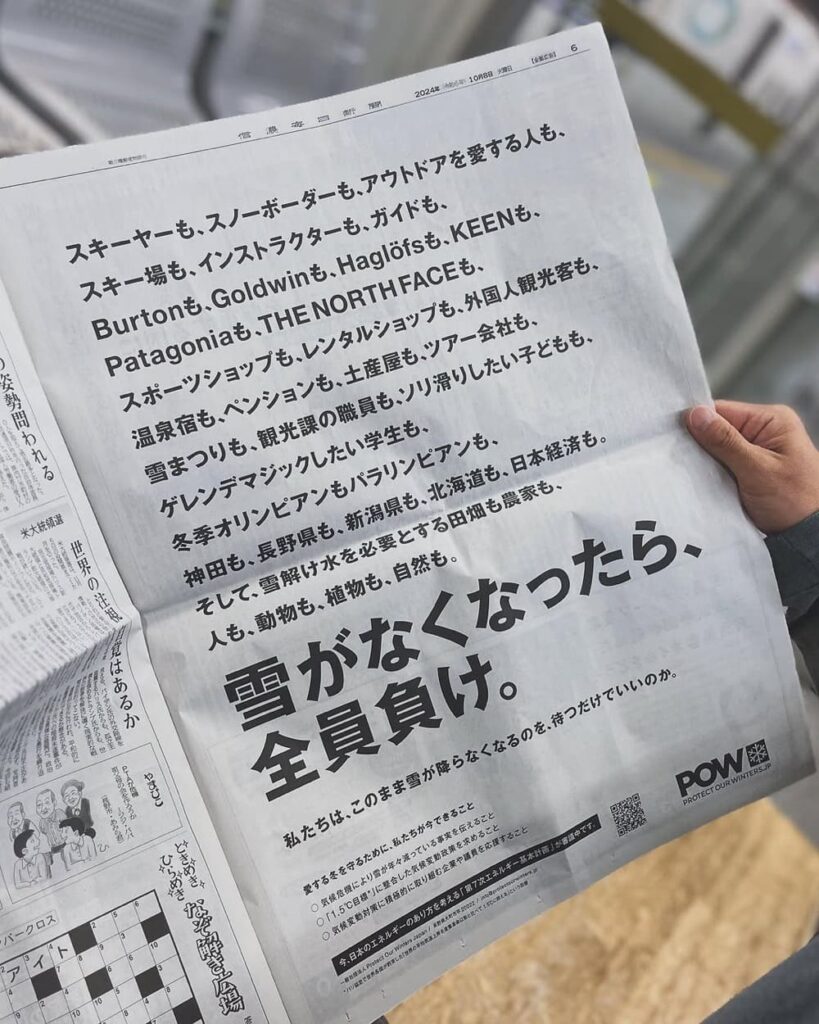 信濃毎日新聞
2024年(令和6年)10月8日 火曜日
【全面広告】
6
スキーヤーも、スノーボーダーも、アウトドアを愛する人も、
スキー場も、インストラクターも、ガイドも、
Burtonも、Goldwinも、Haglöfsも、KEENも、
Patagoniaも、THE NORTH FACEも、
スポーツショップも、レンタルショップも、外国人観光客も、
温泉宿も、ペンションも、土産屋も、ツアー会社も、
雪まつりも、観光課の職員も、ソリ滑りしたい子どもも、
ゲレンデマジックしたい学生も、
冬季オリンピアンもパラリンピアンも、
神田も、長野県も、新潟県も、北海道も、日本経済も。
そして、雪解け水を必要とする田畑も農家も、
人も、動物も、植物も、自然も。
雪がなくなったら、
全員負け。
私たちは、このまま雪が降らなくなるのを、待つだけでいいのか。
POW
PROTECT OUR WINTERS JP
愛する冬を守るために、私たちが今できること
○ 気候危機により雪が年々減っている事実を伝えること
○ 「1.5℃目標*」に整合した気候変動政策を求めること
○ 気候変動対策に積極的に取り組む企業や議員を応援すること
今、日本のエネルギーのあり方を考える「第7次エネルギー基本計画」が審議中です。
一般社団法人 Protect Our Winters Japan
の姿勢問われる
米大統領選
世界の注視
覚はあるか
やまびこ
ときめき
ひらめき
なぞ解き広場
ンバークロス
アイト